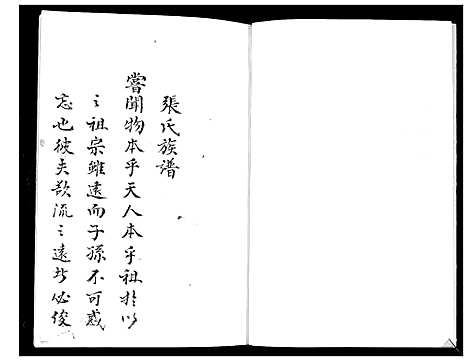 張氏族譜
嘗聞物本乎天人本乎祖於以
〻祖宗雖遠而子孫不可惑
忘也彼夫欲流〻遠者必俊